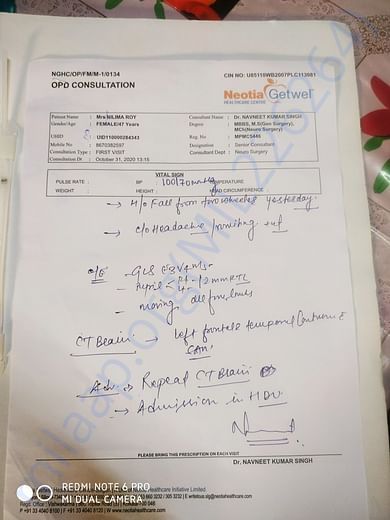 NGHC/OP/FM/M-1/0134
CIN NO: U85110WB2007PLC113981
OPD CONSULTATION
Neotia Getwel
HEALTHCARE CENTRE
Patient Name : Mrs NILIMA ROY
Gender/Age : FEMALE/47 Years
UHID : UID1100000284343
Mobile No : 8670382597
Consultation Type : FIRST VISIT
Consultation Dt : October 31, 2020 13:15
Consultant Name : Dr. NAVNEET KUMAR SINGH
Degree : MBBS, M.S(Gen Surgery), MCh(Neuro Surgery)
Reg. No : MPMC5446
Designation : Senior Consultant
Consultant Dept : Neuro Surgery
VITAL SIGN
PULSE RATE : BP : 100/70 mmHg TEMPERATURE
WEIGHT : HEIGHT : HEAD CIRCUMFERENCE :
→ H/o Fall from two wheeler yesterday.
→ c/o Headache / vomiting +nt
o/e - GCS E3V4M5
- Pupil 2mm RTL
- moving all four limbs
CT Brain → Left frontal temporal Contusion
SAH
Adv → Repeat CT Brain
→ Admission in HDU
PLEASE BRING THIS PRESCRIPTION ON EACH VISIT
Dr. NAVNEET KUMAR SINGH
REDMI NOTE 6 PRO
MI DUAL CAMERA
Healthcare Initiative Limited
P +91 33 4040 8100 | F +91 33 4040 8120 | W www.neotiahealthcare.com